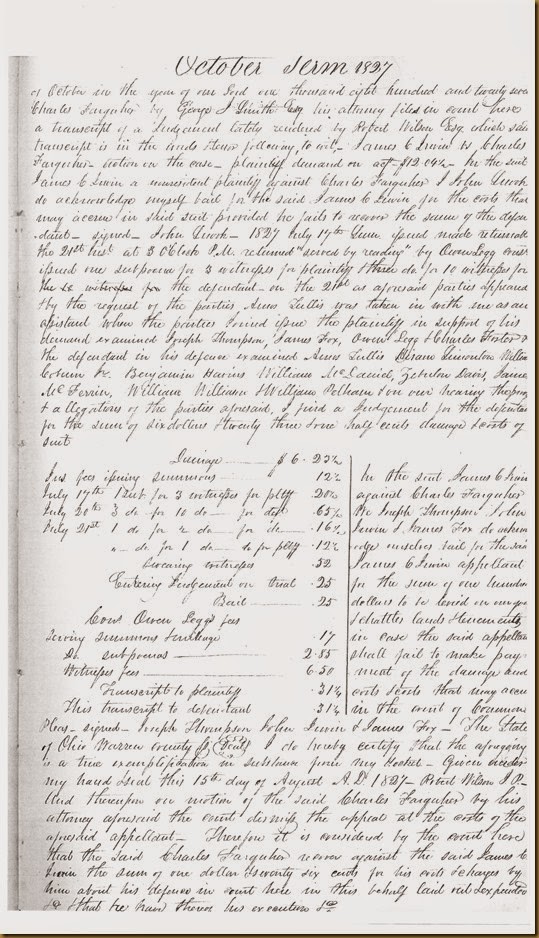 October Term 1827
of October in the year of our Lord one thousand eight hundred and twenty seven
Charles Farquher by George J Smith Esq his attorney files in court here
a transcript of a Judgement lately rendered by Robert Wilson Esq which said
transcript is in the words following to wit,- James C Irwin vs Charles
Farquher action on the case - plaintiffs demand on act - $12.04½ - In the suit
James C Irwin a nonresident plaintiff against Charles Farquher I John
do acknowledge myself bail for the said James C Irwin for the costs that
may accrue in said suit provided he fails to recover the same of the defen
dant - signed - John - 1827 July 17th issued made returnable
the 21st inst at 3 O'Clock P.M. returned "served by reading" by Owen Legg const
issued one subpoena for 3 witnesses for plaintiff & three do. for 10 witnesses for
the defendant - on the 21st as aforesaid parties appeared
& by the request of the parties Amos was taken in with me as an
assistant when the parties joined issue the plaintiff in support of his
demand examined Joseph Thompson, James Fox, Owen Legg & Charles Foster &
the defendant in his defence examined Amos Hiram
Benjamin William McDaniel, Zebulon Davis, James
Mc William William & William Pelham & on our hearing the proofs
& allegations of the parties aforesaid, I find a Judgement for the defendant
for the sum of six dollars & twenty three & one half cents damage & costs of
suit
Damage - $6.23½
Jus fees issuing summons - " 12½
July 17th 1 Sub for 3 witnesses for pltff 20½
July 20th 3 do for 10 do - for deft .65½
July 21st 1 do for 2 do - for do .16½
" do for 1 do - do for pltff .12½
Swearing witnesses .32
Entering Judgement on trial .25
Bail .25
Cons Owen Leggs fees
Serving summons & mileage .17
Do subpoenas 2.85
Witnesses fees 6.50
Transcript to plaintiff .31½
This transcript to defendant .31½
In the suit James C Irwin
against Charles Farquher
We Joseph Thompson John
Irwin & James Fox do acknow
ledge ourselves bail for the said
James C Irwin appellant
for the sum of one hundred
dollars to be levied on our goods
& chattles lands & tenements
in case the said appellant
shall fail to make pay
ment of the damage and
costs & costs that may accrue
in the court of Common
Pleas - signed - Joseph Thompson John Irwin & James Fox - The State
of Ohio Warren county I do hereby certify that the aforegoing
is a true exemplification in substance from my docket - Given under
my hand & seal this 15th day of August A.D. 1827 - Robert Wilson J P -
And thereupon on motion of the said Charles Farquher by his
attorney aforesaid the court dismiss the appeal at the costs of the
aforesaid appellant - Therefore it is considered by the court here
that the said Charles Farquher recover against the said James C
Irwin the sum of one dollar & seventy six cents for his costs & charges by
him about his defence in court here in this behalf laid out & expended
& that he have thereof his execution &c